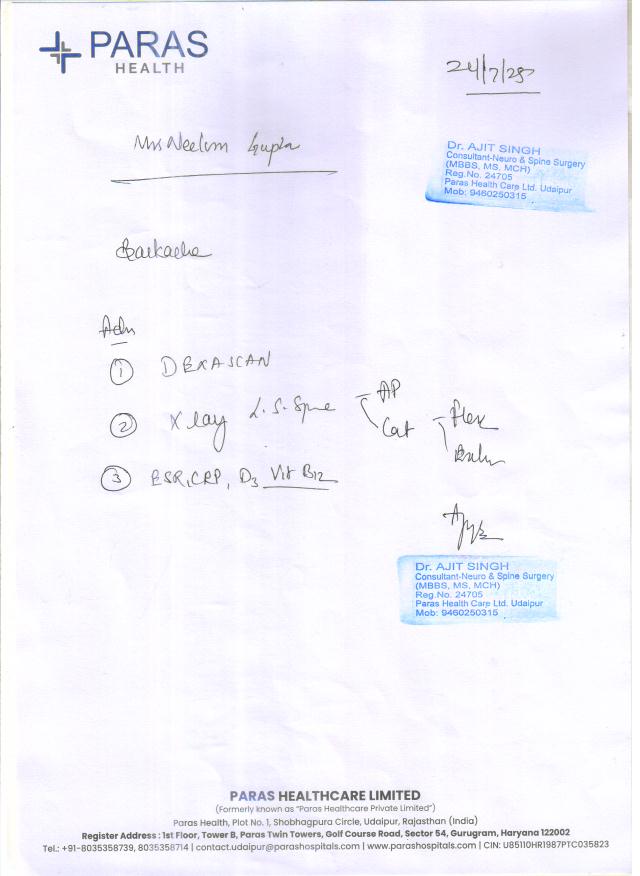 PARAS
HEALTH
24/7/25
Mrs Neelam Gupta
Dr. AJIT SINGH
Consultant-Neuro & Spine Surgery
(MBBS, MS, MCH)
Reg.No. 24705
Paras Health Care Ltd. Udaipur
Mob: 9460250315
Backache
Adv
① DEXASCAN
② X Ray L.S. Spine AP
Lat Flex
Extn
③ ESR, CRP, D3 Vit B12
Dr. AJIT SINGH
Consultant-Neuro & Spine Surgery
(MBBS, MS, MCH)
Reg.No. 24705
Paras Health Care Ltd. Udaipur
Mob: 9460250315
PARAS HEALTHCARE LIMITED
(Formerly known as “Paras Healthcare Private Limited”)
Paras Health, Plot No. 1, Shobhagpura Circle, Udaipur, Rajasthan (India)
Register Address : 1st Floor, Tower B, Paras Twin Towers, Golf Course Road, Sector 54, Gurugram, Haryana 122002
Tel.: +91-8035358739, 8035358714 | contact.udaipur@parashospitals.com | www.parashospitals.com | CIN: U85110HR1987PTC035823